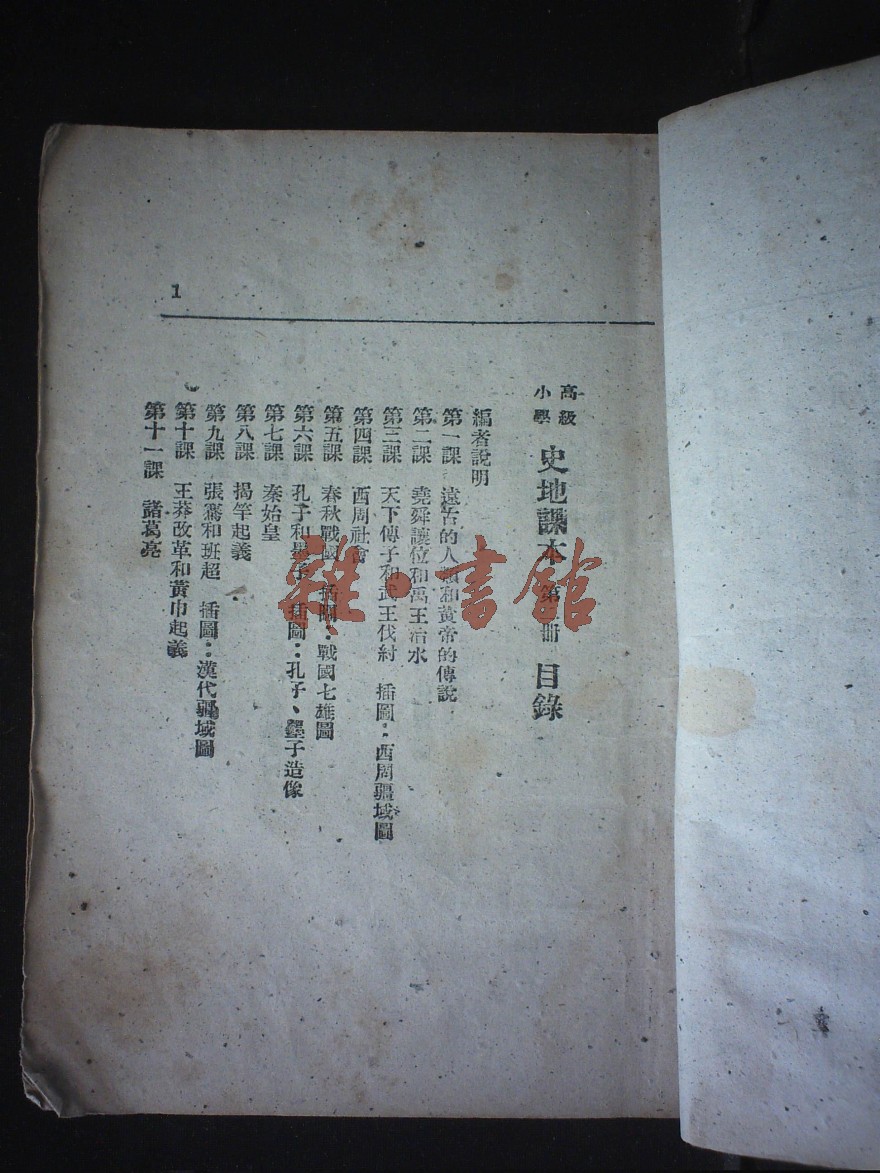 1
高級小學 史地課本 第 冊 目錄
編者說明
第一課 遠古的人類和黃帝的傳說
第二課 堯舜讓位和禹王治水
第三課 天下傳子和武王伐紂 插圖：西周疆域圖
第四課 西周社會
第五課 春秋戰國 插圖：戰國七雄圖
第六課 孔子和墨子 插圖：孔子、墨子造像
第七課 秦始皇
第八課 揭竿起義
第九課 張騫和班超 插圖：漢代疆域圖
第十課 王莽改革和黃巾起義
第十一課 諸葛亮
雜·書館